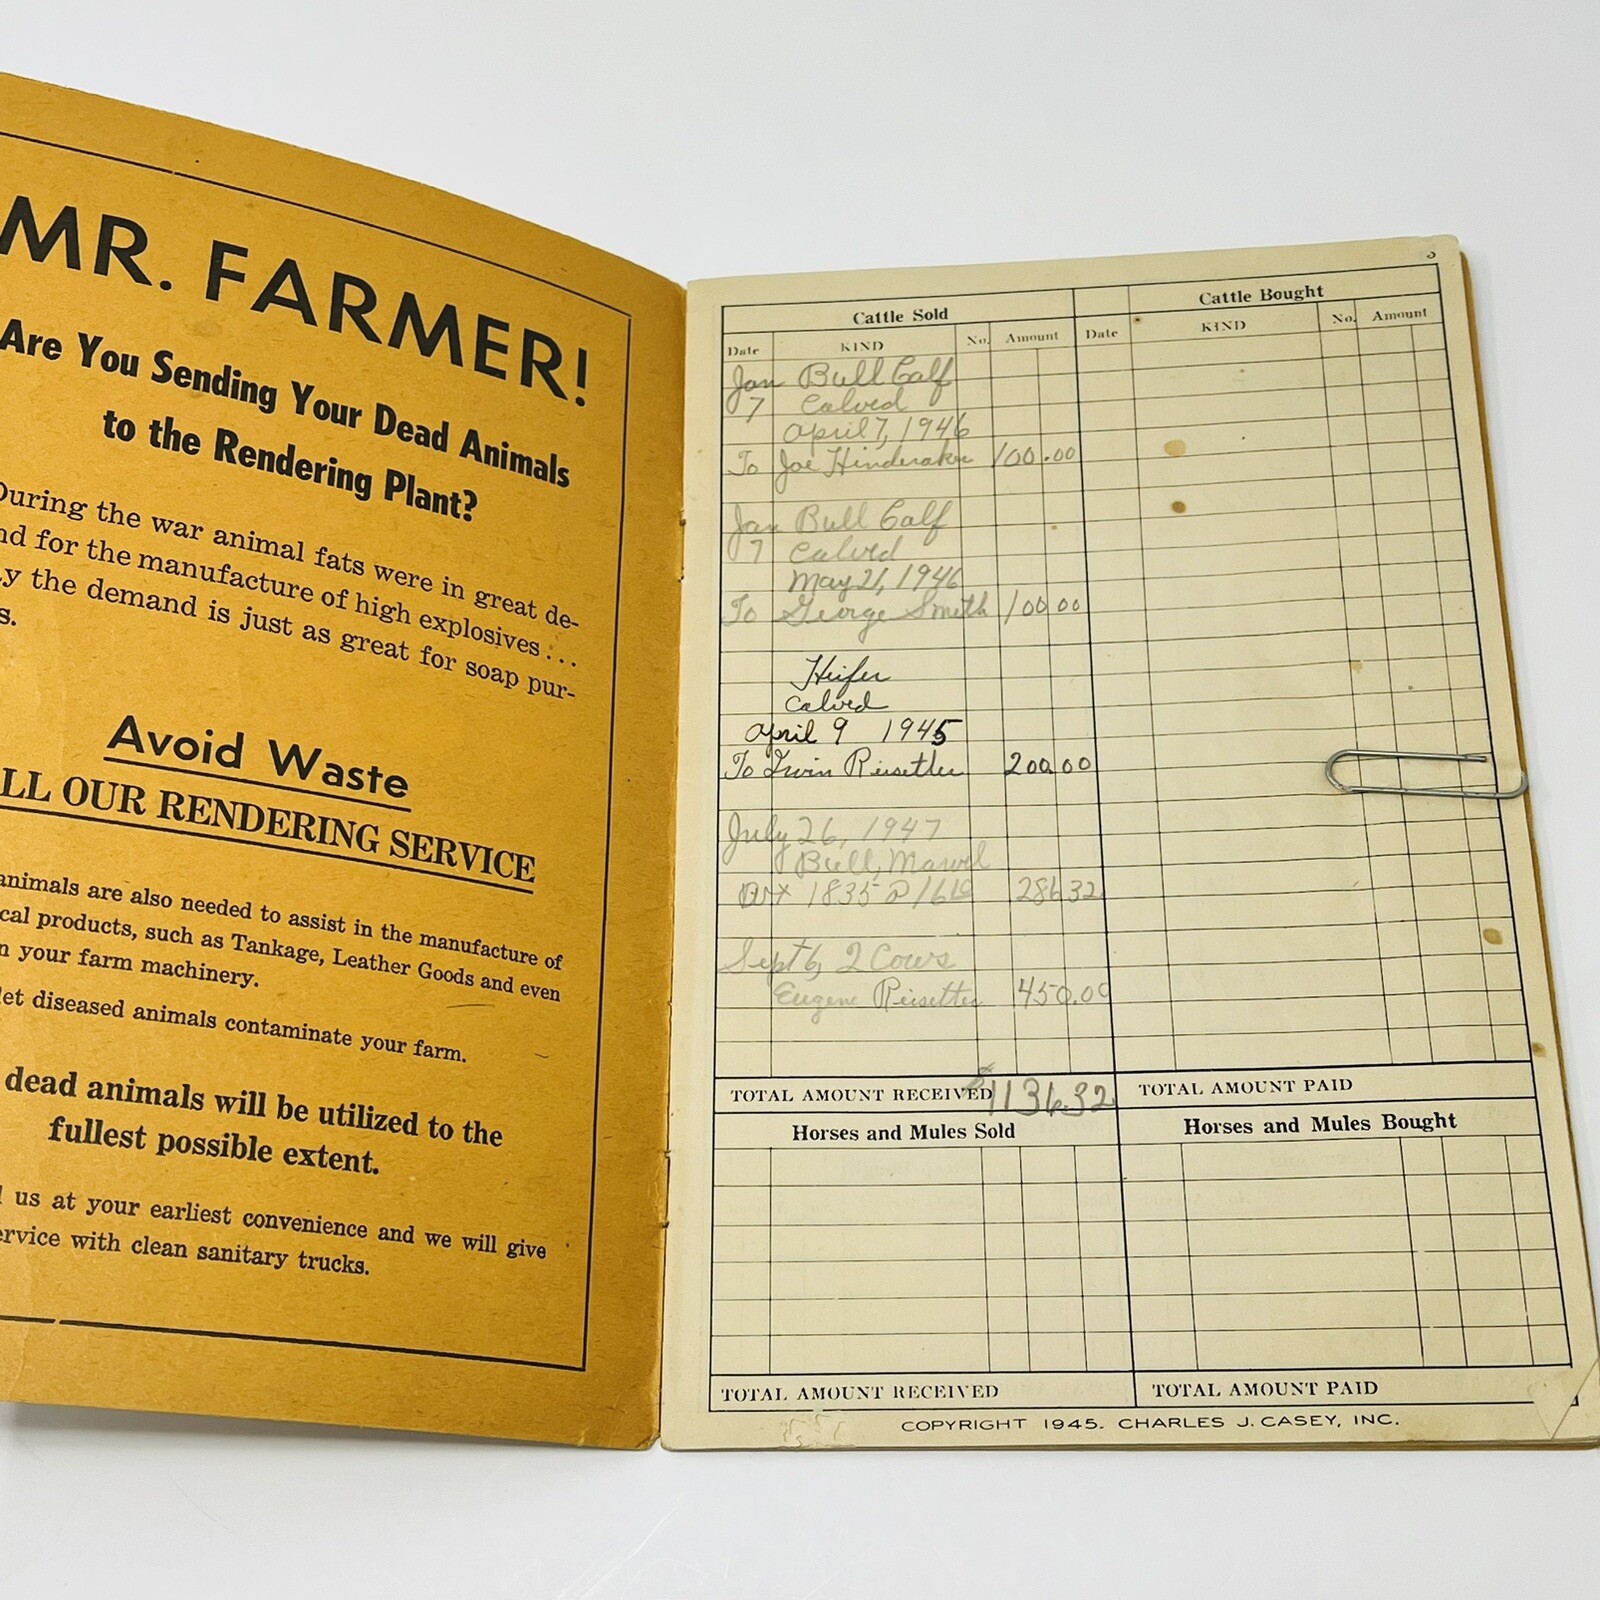 MR. FARMER!
Are You Sending Your Dead Animals
to the Rendering Plant?
During the war animal fats were in great de-
nd for the manufacture of high explosives...
y the demand is just as great for soap pur-
s.
Avoid Waste
LL OUR RENDERING SERVICE
animals are also needed to assist in the manufacture of
cal products, such as Tankage, Leather Goods and even
n your farm machinery.
let diseased animals contaminate your farm.
dead animals will be utilized to the
fullest possible extent.
us at your earliest convenience and we will give
ervice with clean sanitary trucks.
3
Cattle Sold
Date KIND No. Amount
Jan Bull Calf
7 Calved
April 7, 1946
To Joe Hinderaker 100.00
Jan Bull Calf
7 Calved
May 21, 1946
To George Smith 100 00
Heifer
Calved
April 9 1945
To Irvin Reisetter 200.00
July 26, 1947
Bull, Marvel
Wt 1835 @ 286 32
Sept 6, 2 Cows
Eugene Reisetter 450.00
TOTAL AMOUNT RECEIVED $1136.32
Cattle Bought
Date KIND No. Amount
TOTAL AMOUNT PAID
Horses and Mules Sold
TOTAL AMOUNT RECEIVED
Horses and Mules Bought
TOTAL AMOUNT PAID
COPYRIGHT 1945. CHARLES J. CASEY, INC.